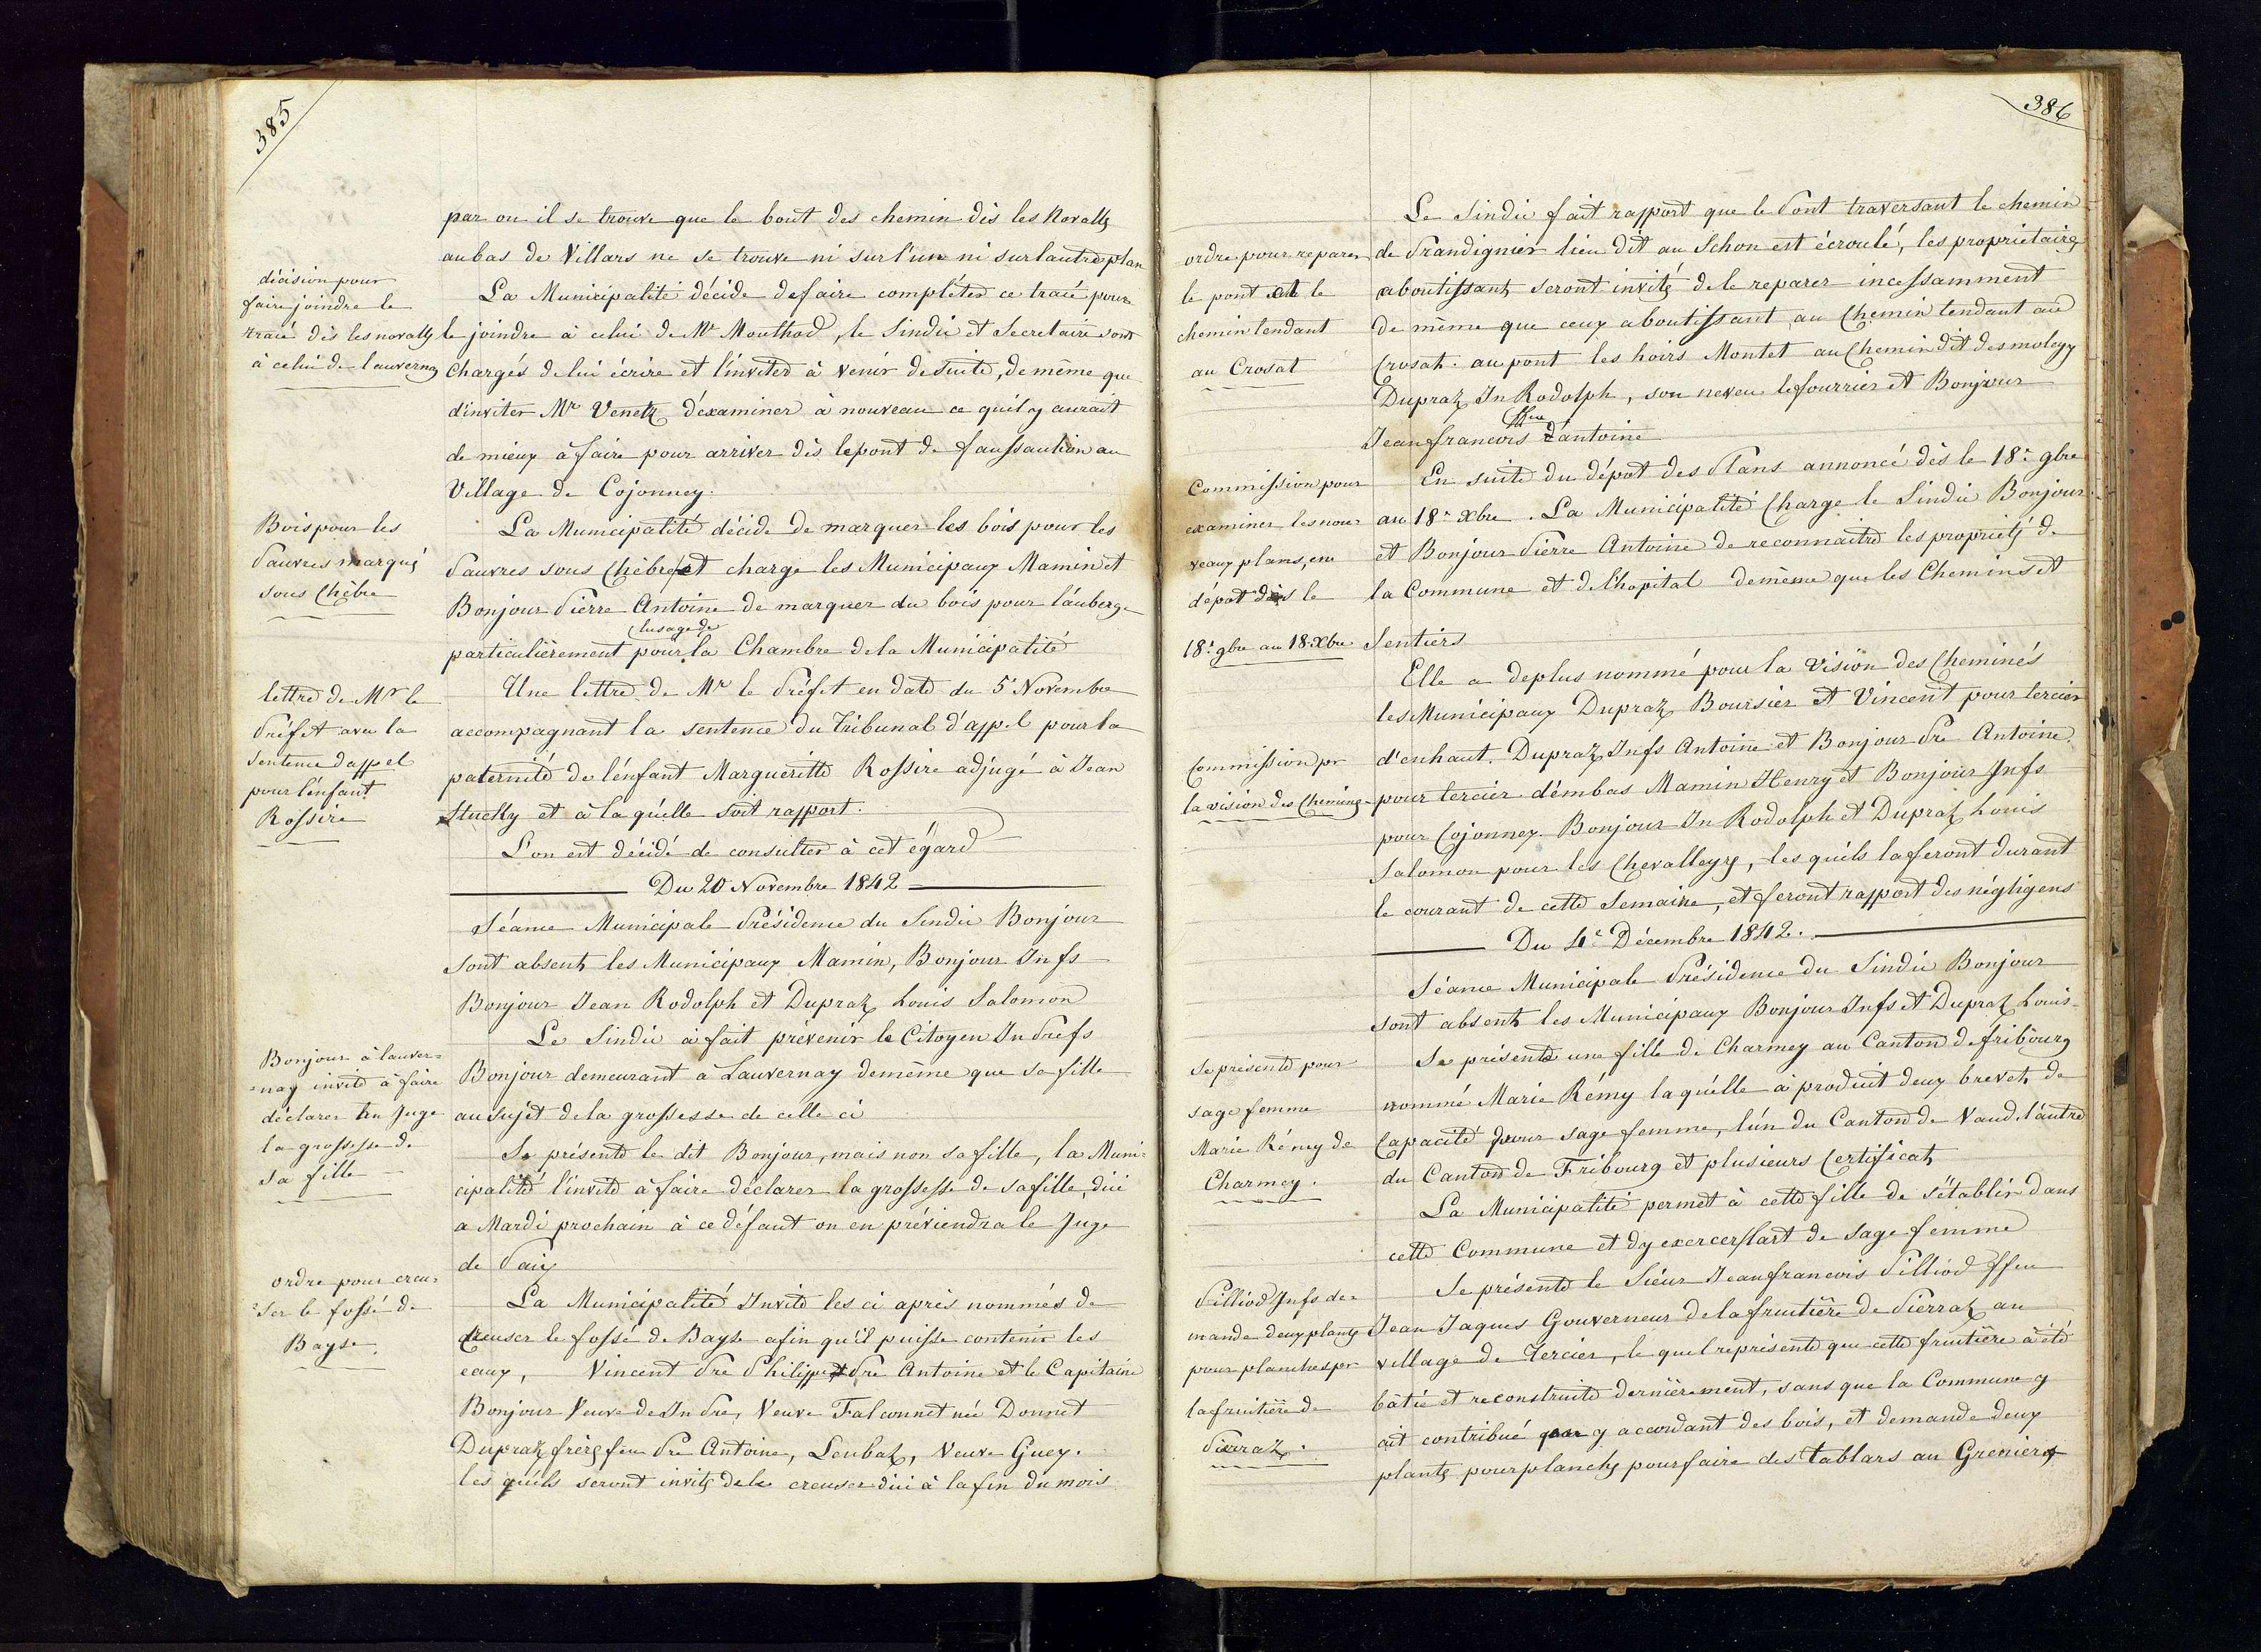 385
par ou il se trouve que le bout des chemin dès les Novalles
au bas de Villars ne se trouve ni sur l'un ni sur lautre plan
décision pour
faire joindre le
tracé dès les novalles
à celui de lauvernay
La Municipalité décide de faire compléter ce tracé pour
le joindre à celui de Mr Mouthod, le Sindic et Secretaire sont
Chargés de lui écrire et l'inviter à venir de suite, de même que
d'inviter Mr Venetz d'examiner à nouveau ce qu'il y aurait
de mieux à faire pour arriver dès le pont de faussaution au
Village de Cojonney.
Bois pour les
Pauvres marqué
sous Chèbre
La Municipalité décide de marquer les bois pour les
Pauvres sous Chèbre et charge les Municipaux Mamin et
Bonjour Pierre Antoine de marquer du bois pour l'auberge
lusage de
particulièrement pour la Chambre de la Municipalité
lettre de Mr le
Préfet avec la
Sentence d'appel
pour l'énfant
Rossire
Une lettre de Mr le Préfet en date du 5 Novembre
accompagnant la sentence du tribunal d'appel pour la
paternité de l'énfant Margueritte Rossire adjugé à Jean
Stucky et à la quélle soit rapport.
L'on est décidé de consulter à cet égard
Du 20 Novembre 1842
Séance Municipale Présidence du Sindic Bonjour
sont absents les Municipaux Mamin, Bonjour Jnfs
Bonjour Jean Rodolph et Dupraz Louis Salomon
Bonjour à lauver=
=nay invité à faire
déclarer au Juge
la grossesse de
sa fille
Le Sindic à fait prévenir le Citoyen Jn Prefs
Bonjour demeurant à Lauvernay demême que sa fille
au sujet de la grossesse de celle ci
Se présente le dit Bonjour, mais non sa fille, la Muni=
cipalité l'invite à faire déclarer la grossesse de sa fille, dici
a Mardi prochain à ce défaut on en préviendra le Juge
de Paix
ordre pour creu=
=ser le fossé de
Bayse.
La Municipalité Invite les ci après nommés de
creuser le fossé de Bayse afin qu'il puisse contenir les
eaux, Vincent Pre Philippe et Pre Antoine et le Capitaine
Bonjour Veuve de Jn Pre, Veuve Falconnet née Donnet
Dupraz frères feu Pre Antoine, Leubaz, Veuve Guey.
les quéls seront invités de le creuser dici à la fin du mois
386
ordre pour reparer
le pont et le
chemin tendant
au Crosat
Le Sindic fait rapport que le Pont traversant le chemin
de Prandignier lieu dit au Schon est écroulé, les propriétaires
aboutissants seront invités de le reparer incessamment
de même que ceux aboutissant au Chemin tendant au
Crosat. au pont les hoirs Montet au Chemin dit des moleyy
Dupraz Jn Rodolph, son neveu le fourrier et Bonjour
ffeu
Jean francois d'antoine
Commission pour
examiner les nou=
veaux plans, en
dépot dès le
18e 9bre au 18 Xbre
En suite du dépot des Plans annoncé dès le 18e 9bre
au 18e Xbre. La Municipalité Charge le Sindic Bonjour
et Bonjour Pierre Antoine de reconnaitre les propriétés de
la Commune et de l'hopital demême que les Chemins et
Sentiers
Commission pr
la vision des Cheminées
Elle a deplus nommé pour la vision des Cheminés
les Municipaux Dupraz Boursier et Vincent pour tercier
d'enhaut. Dupraz Jnfs Antoine et Bonjour Pre Antoine
pour tercier d'embas Mamin Henry et Bonjour Jnfs
pour Cojonney. Bonjour Jn Rodolph et Dupraz Louis
Salomon pour les Chevalleyy, les quéls la feront durant
le courant de cette Semaine, et feront rapport des négligens
Du 4e Décembre 1842.
Séance Municipale Présidence du Sindic Bonjour
sont absents les Municipaux Bonjour Jnfs et Dupraz Louis
Se présente pour
sage femme
Marie Rémy de
Charmey.
Se présente une fille de Charmey au Canton de fribourg
nommé Marie Rémy laquélle à produit deux brevets de
Capacité pour sage femme, l'ún du Canton de Vaud l'autre
du Canton de Fribourg et plusieurs Certificats
La Municipalité permet à cette fille de s'établir dans
cette Commune et d'y exercer l'art de sage femme
Pilliod Jnfs de=
mande deux plantes
pour planches pr
la fruitière de
Pierraz.
Se présente le Siéur Jean francois Pilliod ffeu
Jean Jaques Gouverneur de la fruitière de Pierraz au
village de Tercier, le quel représente que cette fruitière à été
bâtie et reconstruite dernièrement, sans que la Commune y
ait contribué y accordant des bois, et demande deux
plantes pour planches pour faire des tablars au Greniers